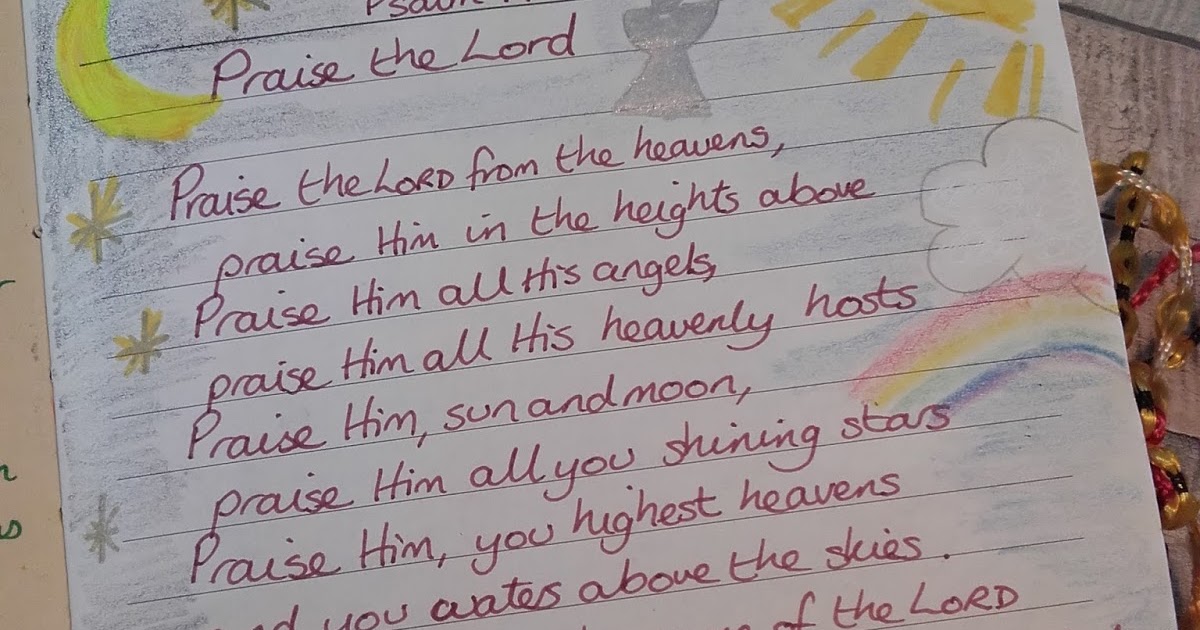 Psalm
Praise the Lord
Praise the LORD from the heavens,
praise Him in the heights above
Praise Him all His angels,
praise Him all His heavenly hosts
Praise Him, sun and moon,
praise Him all you shining stars
Praise Him, you highest heavens
you waters above the skies.
of the LORD